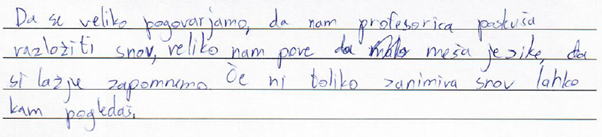 Da se veliko pogovarjamo, da nam profesorica poskuša
razložiti snov, veliko nam pove da meša jezike, da
si lažje zapomnemo. Če ni toliko zanimiva snov lahko
kam pogledaš.